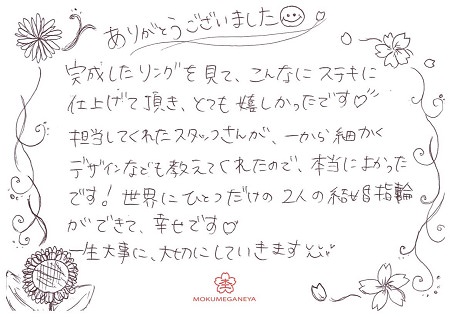 ありがとうございました
完成したリングを見て、こんなにステキに
仕上げて頂き、とても嬉しかったです♡
担当してくれたスタッフさんが、一から細かく
デザインなども教えてくれたので、本当によかった
です！世界にひとつだけの2人の結婚指輪
ができて、幸せです♡
一生大事に、大切にしていきます
MOKUMEGANEYA